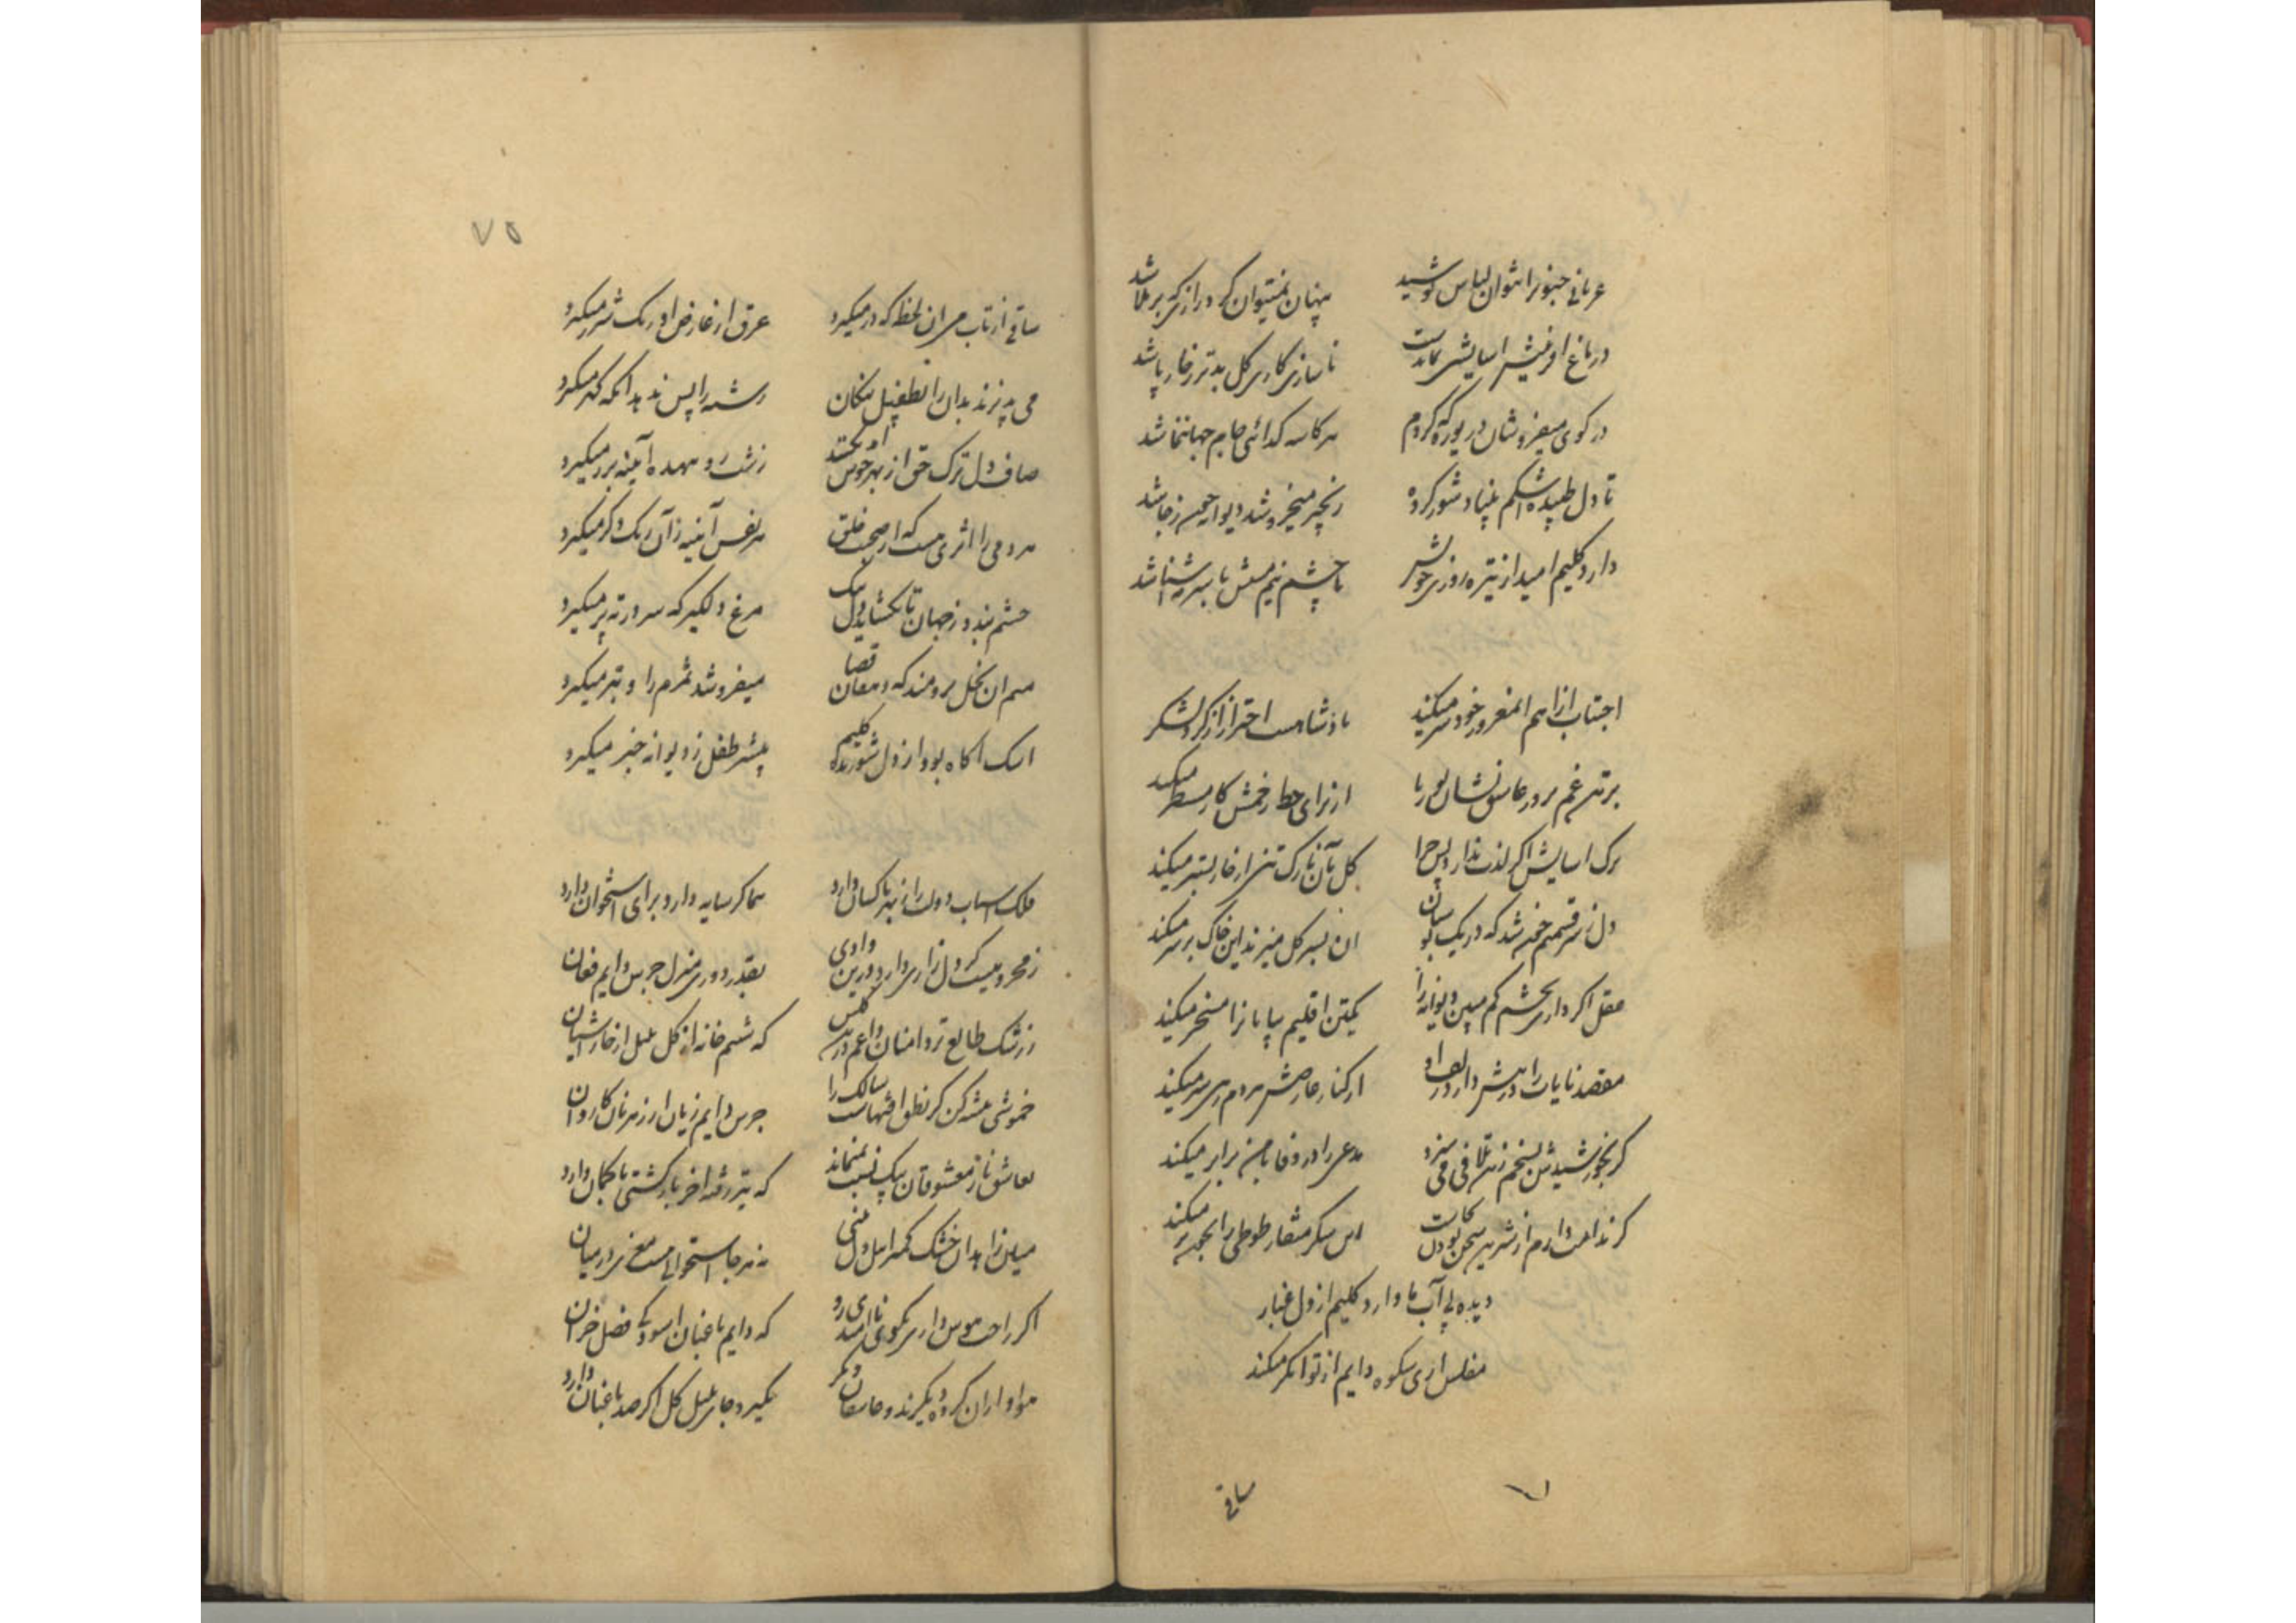 عریانی جنونرا نتوان لباس پوشید پنهان نمیتوان کرد رازی که برملا شد
در باغ افرینش اسایشی نماندست ناسازی کاری گل بدتر ز خار پا شد
در کوی میفروشان دریوزه که کردم هر کاسه گدائی جام جهان نما شد
تا دل طپیده اشکم بنیاد شور کرده زنجیر میخروشد دیوانه چون ز جا شد
دارد کلیم امید از تیره روزی خویش با چشم نیم مستش با سرمه آشنا شد
اجتناب از اهم ان مغرور خود سر میکند پادشاهست احتراز از گرد لشکر
بر تنم غم بوریا از برای خط زخمش کار مسطر میکند
برک اسایش اگر لذت ندارد پس چرا گل بآن نازک تنی از خار بستر میکند
دل ز سر قسمتم خون شد که در یک بوستان ان بسر گل میزند این خاک بر سر میکند
عقل اگر داری بچشم کم مبین دیوانه را یکتن اقلیم بیابانرا مسخر میکند
مقصد نایاب را در پیش دارد زلف او از کنار عارضش هر دم سری سر میکند
گر نجور شیدش تن بسنجم زین تلافی می سزد مدعی را در وفا با من برابر میکند
گر ندامت دارم از شیرین سخن بودن این شکر منقار طوطی را میکند
دیده بی آب ما دارد کلیم از دل غبار
مفلس اری شکوه دایم از توانگر میکند
ساقی
۷۵
ساقی از تاب می ان لحظه که در میگیرد عرق از عارض او رنگ شرر میگیرد
می پذیرند بدان را بطفیل نیکان رشته را پس ندهد انکه گهر میگیرد
صاف دل ترک حق از بهر خوش امد نکند زشت رو بیهده آیینه بزر میگیرد
همدمی را اثری هست که از صحبت خلق هر نفس آینه زان رنگ دگر میگیرد
چشم بند و ز جهان تا بگشاید دل مرغ دلگیر که سر در ته پر میگیرد
منم ان نخل برومند که دهقان قضا میفروشد ثمرم را و تبر میگیرد
اشک اگاه بود از دل شوریده کلیم بیشتر طفل ز دیوانه خبر میگیرد
فلک اسباب دولت را ز بهر ناکسان دارد هما گر سایه دارد برای استخوان دارد
ز محرومیست گر دل زاری دارد درین وادی بقدر دوری منزل جرس دایم فغان
ز رشک طالع تر دامنان داغم درین گلشن که شبنم خانه از گل بلبل از خار آشیان
خموشی پیشه کن کز نطق افتهاست سالک را جرس دایم زیان از رهزنان کاروان
بعاشق ناز معشوقان بیک نسبت نمیماند که تیر رفته اخر بازگشتی با کمان دارد
میان زاهدان خشک کمتر اهل دل بینی نه هر جا استخوانی هست مغزی در میان
اگر راحت هوس داری بکوی ناامیدی رو که دایم باغبان اسودگی فصل خزان
هواداران گروه دیگرند و عاشقان دیگر نگیرد جای بلبل گل اگر صد باغبان دارد